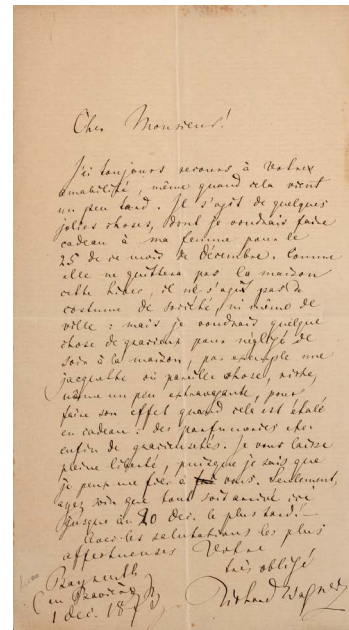 Cher Monsieur!
J'ai toujours recours à Votre
amabilité, même quand cela vient
un peu tard. Il s'agit de quelques
jolies choses, dont je voudrais faire
cadeau à ma femme pour le
25 de ce mois de décembre. Comme
elle ne quittera pas la maison
cette hiver, il ne s'agit pas de
costume de société, ni même de
ville: mais je voudrais quelque
chose de gracieux pour négligé de
soir à la maison, par exemple une
jacquette ou pareille chose, riche,
même un peu extravagante, pour
faire son effet quand cela est étalé
en cadeau: des parfumeries etc.
enfin de gracieusetés. Je vous laisse
pleine liberté, puisque je sais que
je peux me fier à vous. Seulement,
ayez soin que tout soit arrivé ici
jusque au 20 déc. le plus tard!—
Avec les salutations les plus
affectueuses Votre
très obligé
Bayreuth
(en Bavière)
1 déc. 18
Richard Wagner